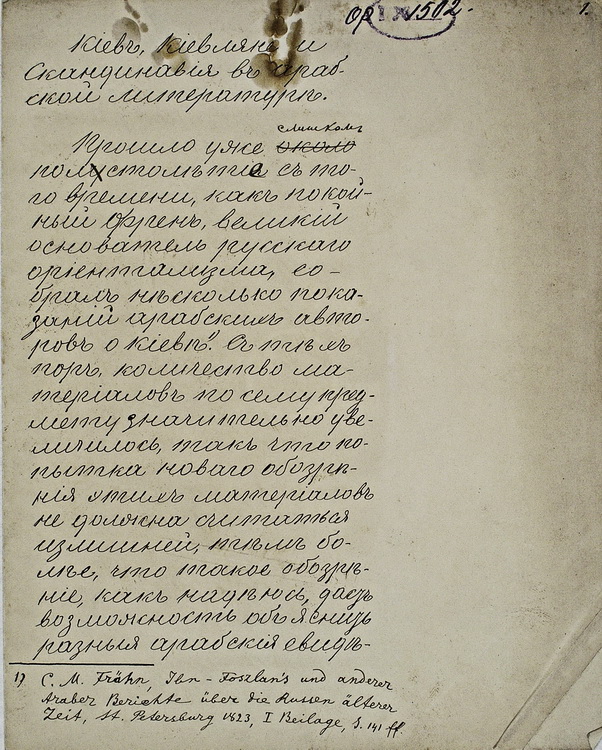 Ор 1502. 1.
Кіевъ, Кіевляне и
Скандинавія въ араб-
ской литературѣ.
слишкомъ
Прошло уже около
полустолѣтіе съ то-
го времени, какъ покой-
ный Френъ, великій
основатель русскаго
оріентализма, со-
бралъ нѣсколько пока-
заній арабскихъ авто-
ровъ о Кіевѣ¹. Съ тѣхъ
поръ, количество ма-
теріаловъ по сему пред-
мету значительно уве-
личилось, такъ что по-
пытка новаго обозрѣ-
нія этихъ матеріаловъ
не должна считаться
излишней, тѣмъ бо-
лѣе, что такое обозрѣ-
ніе, какъ надѣюсь, дастъ
возможность объяснить
разныя арабскія свидѣ-
1) C. M. Frähn, Ibn-Foszlan's und anderer
Araber Berichte über die Russen älterer
Zeit, St. Petersburg 1823, I Beilage, S. 141 ff.